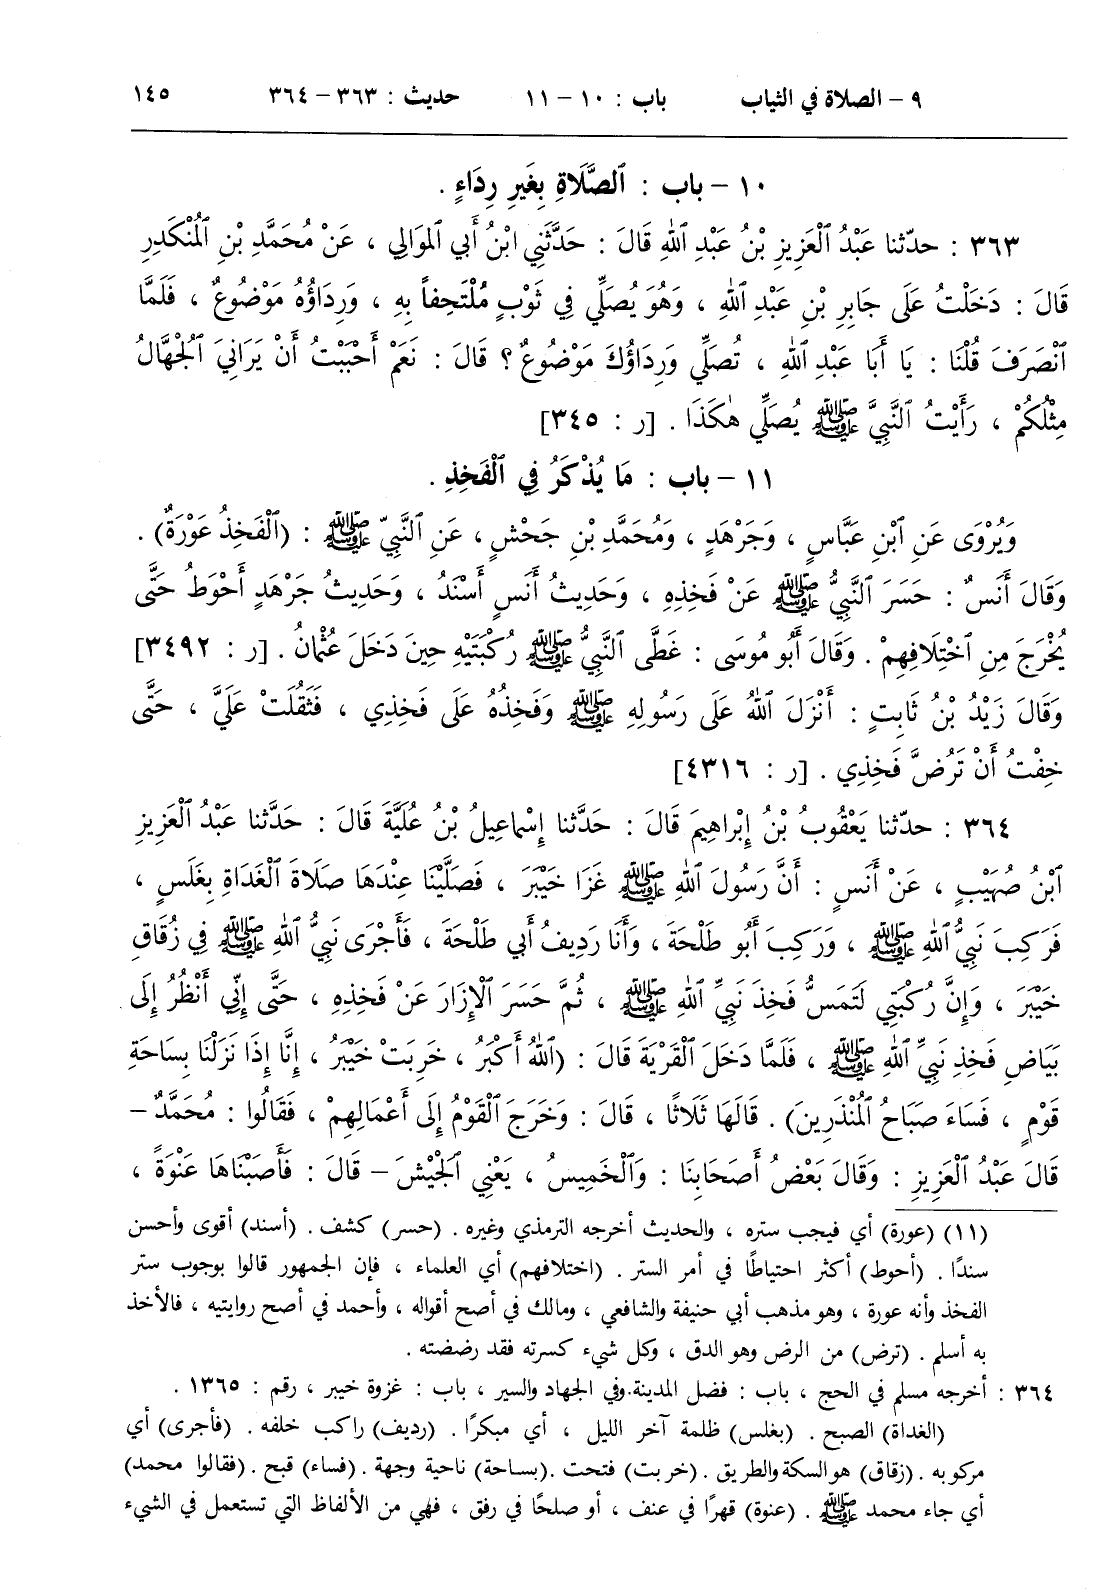 ٩ – الصلاة في الثياب باب : ١٠ – ١١ حديث : ٣٦٣ – ٣٦٤ ١٤٥
١٠ – باب : ٱلصَّلَاةِ بِغَيرِ رِدَاءٍ .
٣٦٣ : حدّثنا عَبْدُ ٱلْعَزِيزِ بْنُ عَبْدِ ٱللهِ قَالَ : حَدَّثَنِي ابْنُ أَبي ٱلموَالِي ، عَنْ مُحَمَّدِ بْنِ ٱلْمُنْكَدِرِ
قَالَ : دَخَلْتُ عَلَى جَابِرِ بْنِ عَبْدِ ٱللهِ ، وَهُوَ يُصَلِّي فِي ثَوْبٍ مُلْتَحِفاً بِهِ ، وَرِدَاؤُهُ مَوْضُوعٌ ، فَلَمَّا
ٱنْصَرَفَ قُلْنَا : يَا أَبَا عَبْدِ ٱللهِ ، تُصَلِّي وَرِدَاؤُكَ مَوْضُوعٌ ؟ قَالَ : نَعَمْ أَحْبَبْتُ أَنْ يَرَانِيَ ٱلْجُهَّالُ
مِثْلُكُمْ ، رَأَيْتُ ٱلنَّبِيَّ ﷺ يُصَلِّي هٰكَذَا . [ر : ٣٤٥]
١١ – باب : مَا يُذْكَرُ فِي ٱلْفَخِذِ .
وَيُرْوَى عَنِ ٱبْنِ عَبَّاسٍ ، وَجَرْهَدٍ ، وَمُحَمَّدِ بْنِ جَحْشٍ ، عَنِ ٱلنَّبِيِّ ﷺ : (ٱلْفَخِذُ عَوْرَةٌ) .
وَقَالَ أَنَسٌ : حَسَرَ ٱلنَّبِيُّ ﷺ عَنْ فَخِذِهِ ، وَحَدِيثُ أَنَسٍ أَسْنَدُ ، وَحَدِيثُ جَرْهَدٍ أَحْوَطُ حَتَّى
يُخْرَجَ مِنِ ٱخْتِلَافِهِمْ . وَقَالَ أَبُو مُوسَى : غَطَّى ٱلنَّبِيُّ ﷺ رُكْبَتَيْهِ حِينَ دَخَلَ عُثْمَانُ . [ر : ٣٤٩٢]
وَقَالَ زَيْدُ بْنُ ثَابِتٍ : أَنْزَلَ ٱللهُ عَلَى رَسُولِهِ ﷺ وَفَخِذُهُ عَلَى فَخِذِي ، فَثَقُلَتْ عَلَيَّ ، حَتَّى
خِفْتُ أَنْ تَرُضَّ فَخِذِي . [ر : ٤٣١٦]
٣٦٤ : حدّثنا يَعْقُوبُ بْنُ إِبْرَاهِيمَ قَالَ : حَدَّثنا إِسْمَاعِيلُ بْنُ عُلَيَّةَ قَالَ : حَدَّثنا عَبْدُ ٱلْعَزِيزِ
ٱبْنُ صُهَيْبٍ ، عَنْ أَنَسٍ : أَنَّ رَسُولَ ٱللهِ ﷺ غَزَا خَيْبَرَ ، فَصَلَّيْنَا عِنْدَهَا صَلَاةَ ٱلْغَدَاةِ بِغَلَسٍ ،
فَرَكِبَ نَبِيُّ ٱللهِ ﷺ ، وَرَكِبَ أَبُو طَلْحَةَ ، وَأَنَا رَدِيفُ أَبي طَلْحَةَ ، فَأَجْرَى نَبِيُّ ٱللهِ ﷺ فِي زُقَاقِ
خَيْبَرَ ، وَإِنَّ رُكْبَتِي لَتَمَسُّ فَخِذَ نَبِيِّ ٱللهِ ﷺ ، ثُمَّ حَسَرَ ٱلْإِزَارَ عَنْ فَخِذِهِ ، حَتَّى إِنِّي أَنْظُرُ إِلَى
بَيَاضِ فَخِذِ نَبِيِّ ٱللهِ ﷺ ، فَلَمَّا دَخَلَ ٱلْقَرْيَةَ قَالَ : (ٱللهُ أَكْبَرُ ، خَرِبَتْ خَيْبَرُ ، إِنَّا إِذَا نَزَلْنَا بِسَاحَةِ
قَوْمٍ ، فَسَاءَ صَبَاحُ ٱلْمُنْذَرِينَ) . قَالَهَا ثَلَاثًا ، قَالَ : وَخَرَجَ ٱلْقَوْمُ إِلَى أَعْمَالِهِمْ ، فَقَالُوا : مُحَمَّدٌ –
قَالَ عَبْدُ ٱلْعَزِيزِ : وَقَالَ بَعْضُ أَصَحَابِنَا : وَٱلْخَمِيسُ ، يَعْنِي ٱلْجَيْشَ – قَالَ : فَأَصَبْنَاهَا عَنْوَةً ،
(١١) (عورة) أي فيجب ستره ، والحديث أخرجه الترمذي وغيره . (حسر) كشف . (أسند) أقوى وأحسن
سندًا . (أحوط) أكثر احتياطًا في أمر الستر . (اختلافهم) أي العلماء ، فإن الجمهور قالوا بوجوب ستر
الفخذ وأنه عورة ، وهو مذهب أبي حنيفة والشافعي ، ومالك في أصح أقواله ، وأحمد في أصح روايتيه ، فالأخذ
به أسلم . (ترض) من الرض وهو الدق ، وكل شيء كسرته فقد رضضته .
٣٦٤ : أخرجه مسلم في الحج ، باب : فضل المدينة.وفي الجهاد والسير ، باب : غزوة خيبر ، رقم : ١٣٦٥ .
(الغداة) الصبح . (بغلس) ظلمة آخر الليل ، أي مبكرًا . (رديف) راكب خلفه . (فأجرى) أي
مركوبه . (زقاق) هو السكة والطريق . (خربت) فتحت . (بساحة) ناحية وجهة . (فساء) قبح . (فقالوا محمد)
أي جاء محمد ﷺ . (عنوة) قهرًا في عنف ، أو صلحًا في رفق ، فهي من الألفاظ التي تستعمل في الشيء